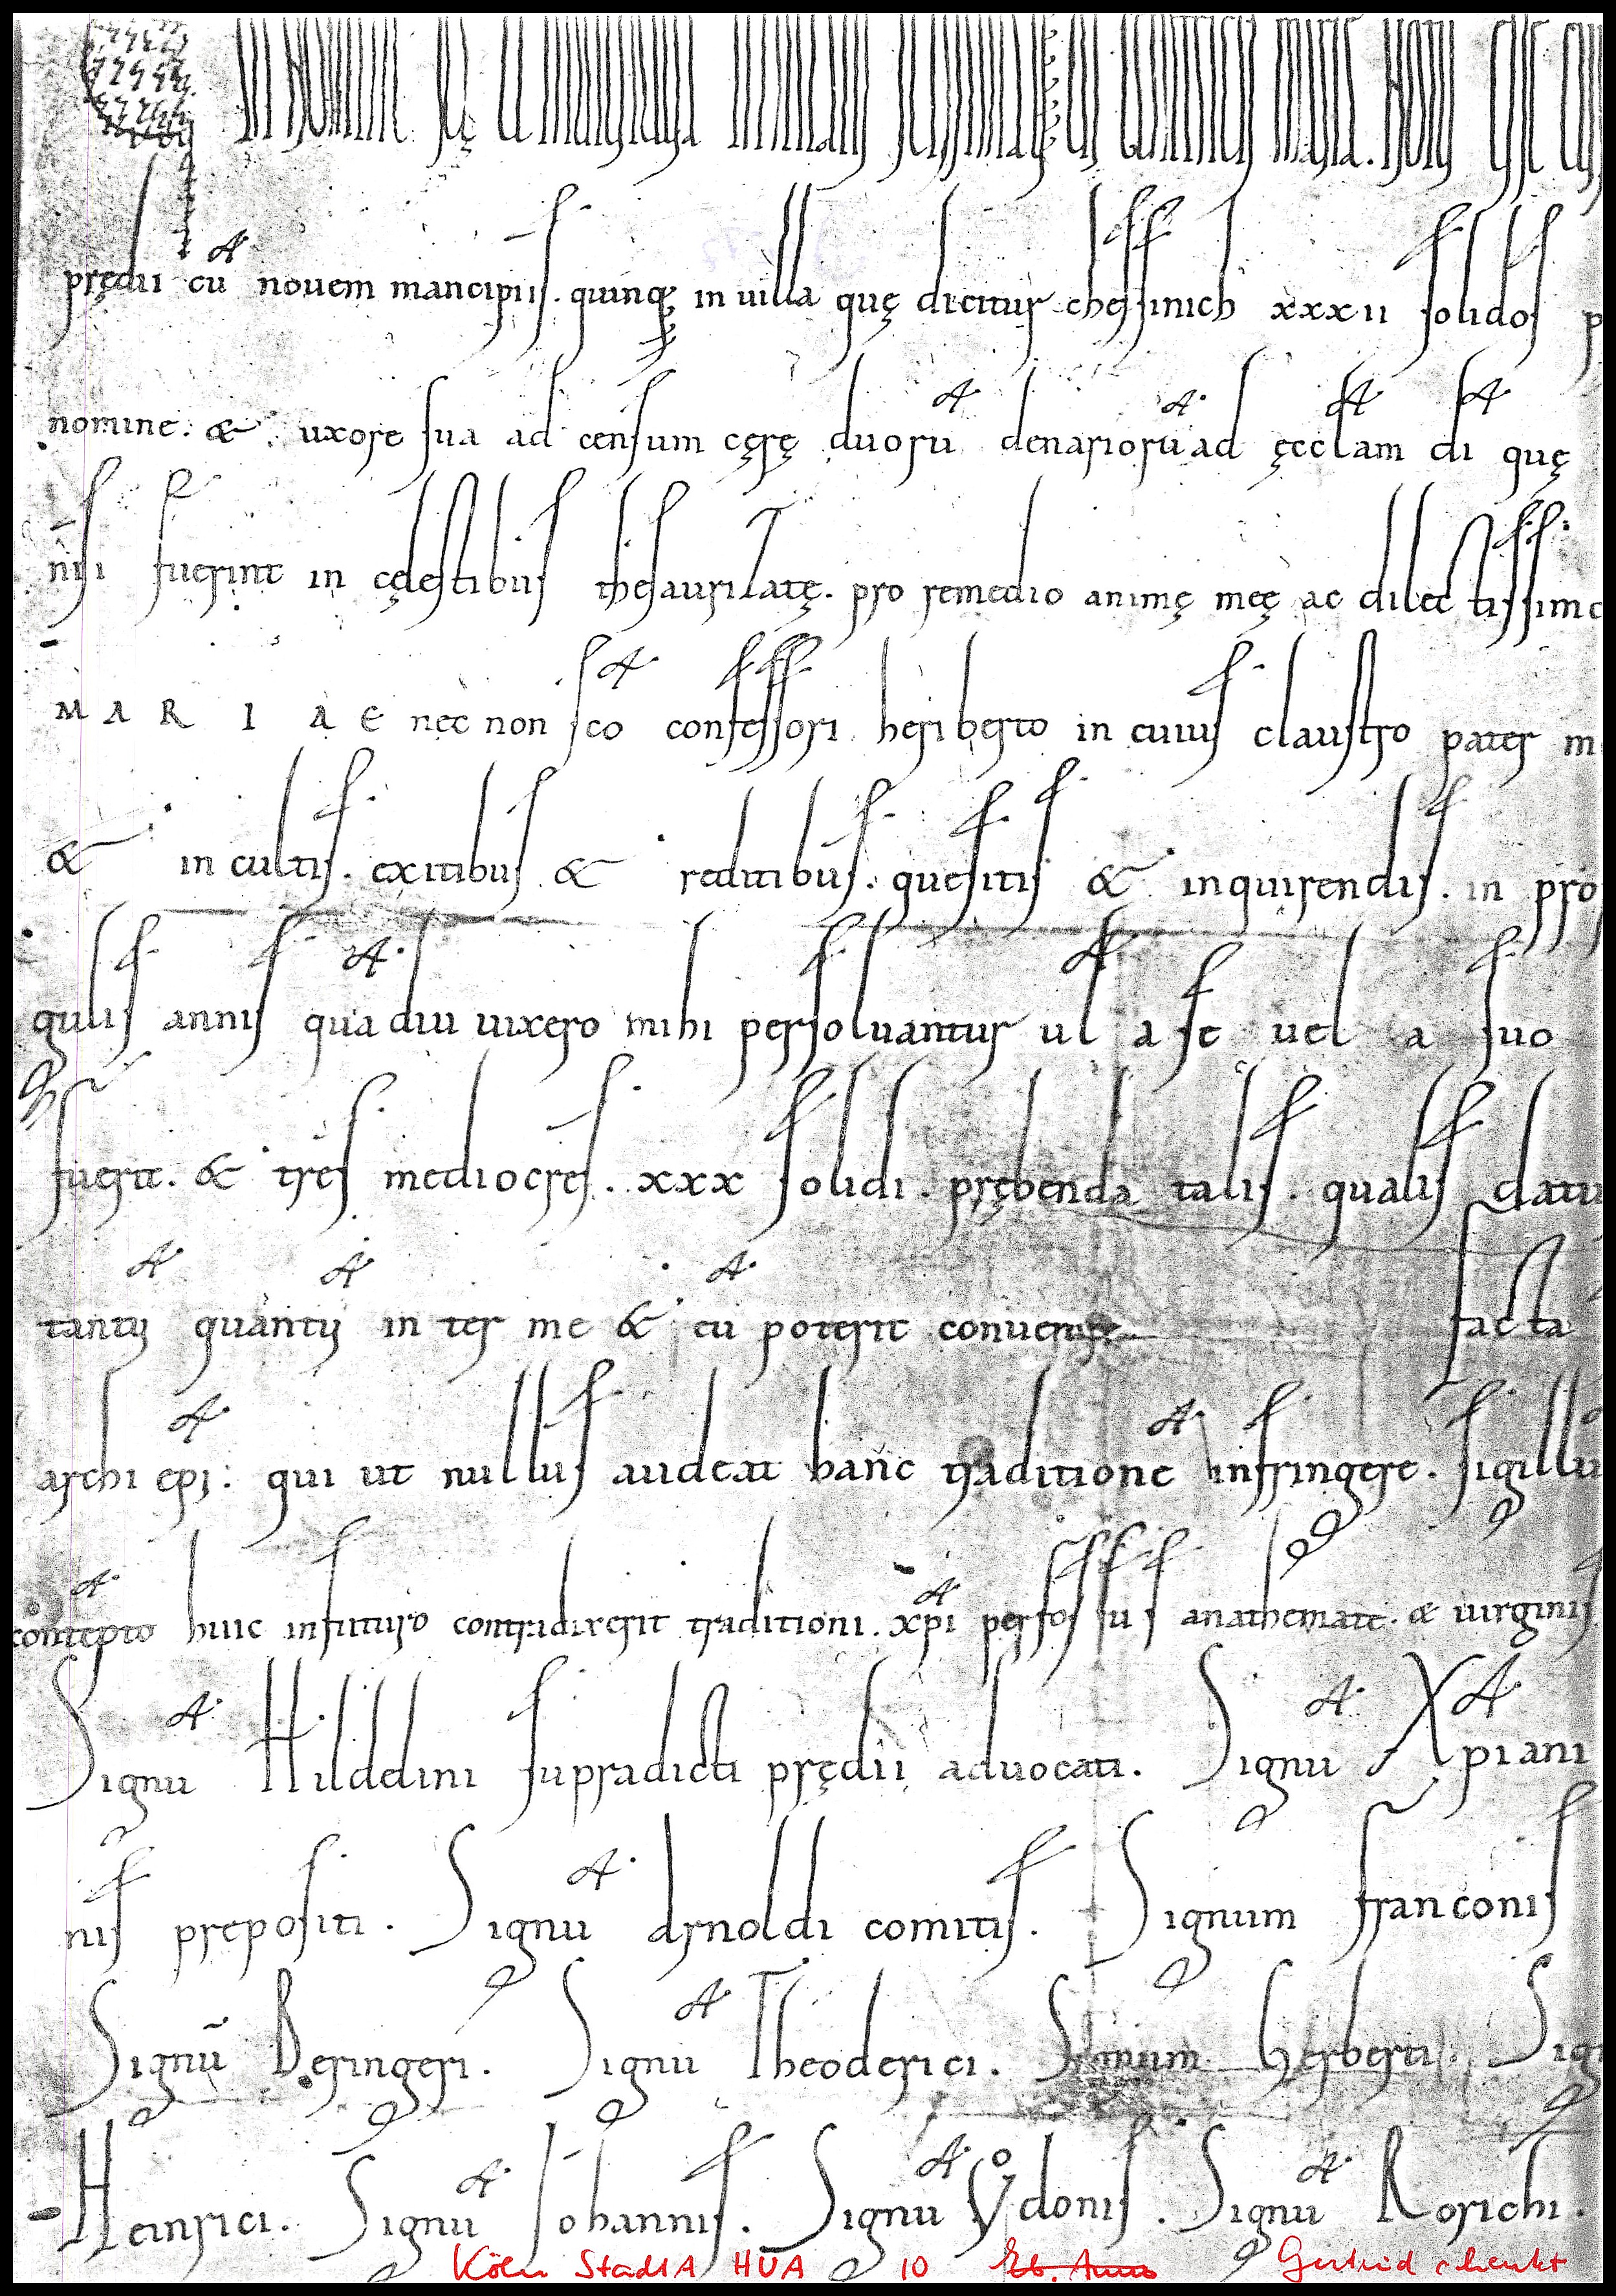 IN NOMINE SCĘ ET INDIVIDUĘ TRINITATIS MARIĘ. NOTUM ESSE
prędii cū novem mancipiis. quinq; in villa quę dicitur chessinich xxxii solidos
nomine. & uxore sua ad censum cęrę duorū denariorū ad ęcclam di quę
nisi fuerint in cęlestibus thesaurilatę. pro remedio animę meę ac dilectissim
MARIAE nec non sco confessori heriberto in cuius claustro pater m
& in cultis. exitibus & reditibus. quesitis & inquirendis. in pro
gulis annis quā diu vixero mihi persolvantur ul a se uel a suo
fuerit. & tres mediocres. xxx solidi. prębenda talis. qualis datu
tantū quantū in ter me & eū poterit convenire. facta
archi epi: qui ut nullus audeat hanc traditionē infringere. sigillū
huic infuturo contradixerit traditioni. xp̄i perfossus anathemate. & virginis
Signū Hildelini supradicti prędii advocati. Signū Xpiani
nis prepositi. Signū Arnoldi comitis. Signum franconis
Signū Beringeri. Signū Theoderici. Signum herberti. Sig
Heinrici. Signū Iohannis. Signū Vͦdonis. Signū Rorichi.
Köln StadtA HUA 10 Gertrud schenkt